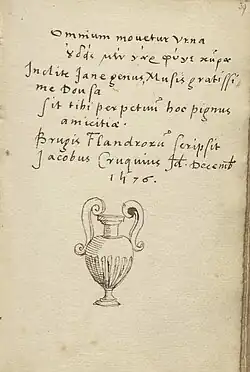 Omnium movetur Urna
γὰρ
Inclite Jane genus, Musis gratissi-
me Dousa
Sit tibi perpetuũ hoc pignus
amicitiæ.
Brugis Flandrorũ scripsit
Jacobus Cruquius Id. Decemb.
1576.